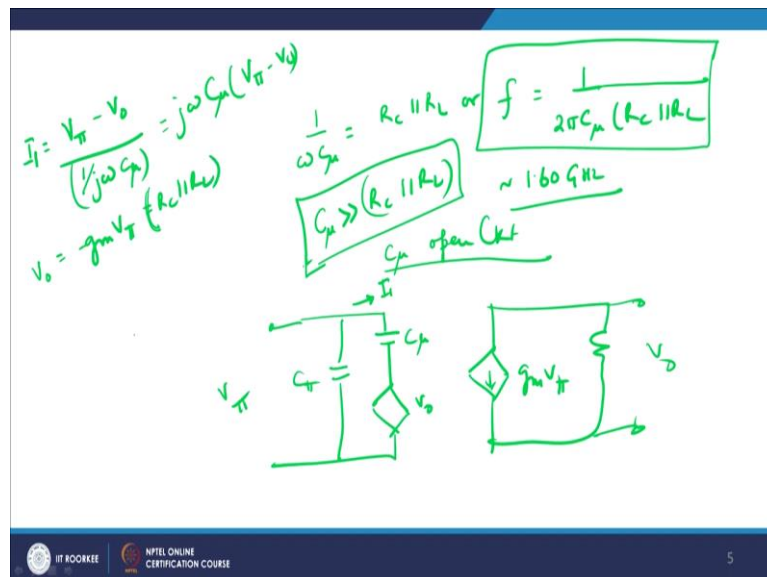 I₁ = Vπ - V₀ / (1/jωCμ) = jωCμ(Vπ - V₀)
V₀ = gmVπ (Rc || RL)
1/ωCμ = Rc || RL or f = 1 / 2πCμ (Rc || RL
Cμ >> (Rc || RL) ~ 1.60 GHz
Cμ open Ckt
→ I₁
Vπ Cπ Cμ V₀ gmVπ V₀
IIT ROORKEE NPTEL ONLINE
CERTIFICATION COURSE
5